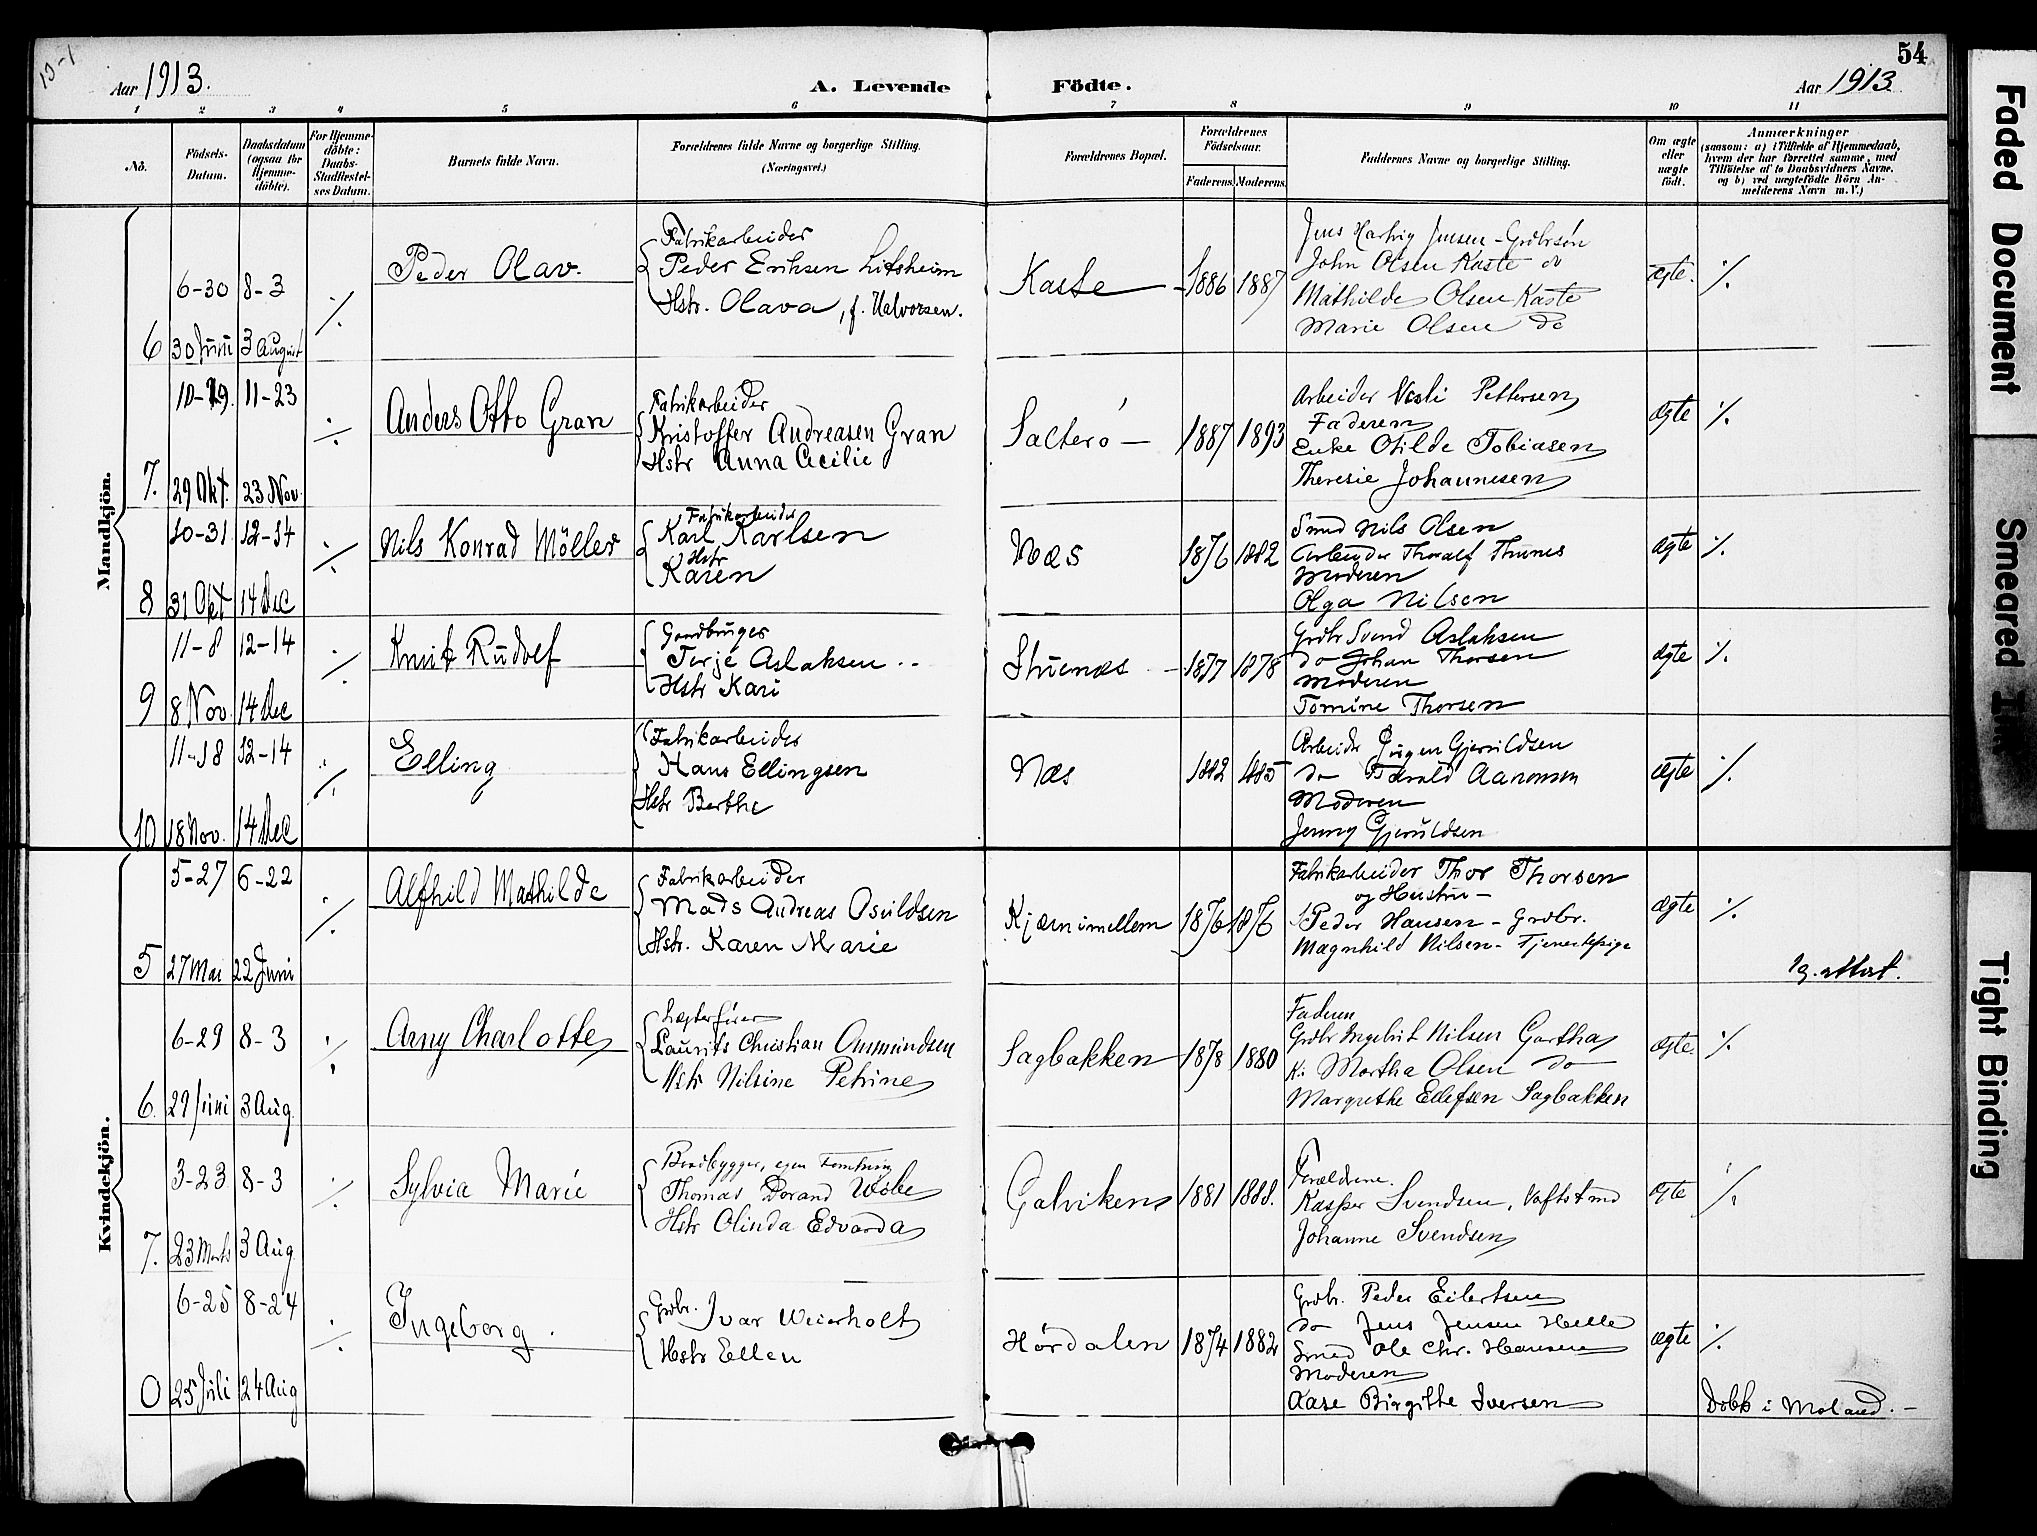 10-1
54
Aar 1913.
A. Levende Födte.
Aar 1913
1 2 3 4 5 6 7 8 9 10 11
No.
Födsels-Datum.
Daabsdatum (ogsaa for Hjemme-döbte).
For Hjemme-döbte: Daabs-Stadfæstel-ses Datum.
Barnets fulde Navn.
Forældrenes fulde Navne og borgerlige Stilling.
(Næringsvei.)
Forældrenes Bopæl.
Forældrenes Födselsaar.
Faderens. Moderens.
Faddernes Navne og borgerlige Stilling.
Om ægte eller uægte födt.
Anmærkninger
(saasom: a) i Tilfælde af Hjemmedaab,
hvem der har forrettet samme, med
Tilföielse af to Daabsvidners Navne,
og b) ved uægtefödte Börn An-
melderens Navn m. V.)
Mandkjön.
6
6-30 8-3
30 Juni 3 August
./.
Peder Olav.
Fabrikarbeider
Peder Eriksen Litsheim
Hstr. Olava, f. Halvorsen.
Kaste
1886 1887
Jens Hartvig Jensen - Grdbrsøn
John Olsen Kaste do
Mathilde Olsen Kaste
Marie Olsen do
ægte. ./.
7.
10-29. 11-23
29 Okt. 23 Nov.
./.
Anders Otto Gran
Fabrikarbeider
Kristoffer Andreasen Gran
Hstr Anna Cecilie
Salterö
1887 1893
Arbeider Pettersen
Faderen
Enke Otilde Tobiasen
Theresie Johannesen
ægte ./.
8
10-31 12-14
31 Okt 14 Dec
./.
Nils Konrad Möller
Fabrikarbeider
Karl Karlsen
Hstr
Karen
Næs
1876 1882
Smed Nils Olsen
Arbeider Thoralf Thunes
Moderen
Olga Nilsen
ægte ./.
9
11-8 12-14
8 Nov. 14 Dec
./.
Knut Rudolf
Gaardbruger
Terje Aslaksen
Hstr Kari
Stuenæs
1877 1878
Grdbr Svend Aslaksen
do Johan Thorsen
Moderen
Tomine Thorsen
ægte ./.
10
11-18 12-14
18 Nov. 14 Dec
./.
Elling
Fabrikarbeider
Hans Ellingsen
Hstr Berthe
Næs
1882 1885
Arbeider Jörgen Gjeruldsen
do Harald Aanonsen
Moderen
Jenny Gjeruldsen
ægte ./.
Kvindekjön.
5
5-27 6-22
27 Mai 22 Juni
./.
Alfhild Mathilde
Fabrikarbeider
Mads Andreas Osuldsen
Hstr. Karen Marie
Kjærnimellem
1876 1876
Fabrikarbeider Thor Thorsen
og Hustru -
Peder Hansen - Grdbr.
Magnhild Nilsen - Tjenestepige
ægte ./.
19. attest.
6.
6-29 8-3
29 Juni 3 Aug.
./.
Arny Charlotte
Lægterfører
Laurits Christian Ommundsen
Hstr Nilsine Petrine
Sagbakken
1878 1880
Faderen
Grdbr Ingebrit Nilsen Gartha
K. Martha Olsen do
Margrethe Ellefsen Sagbakken
ægte. ./.
7.
3-23 8-3
23 Marts 3 Aug.
./.
Sylvia Marie
Baadbygger, egen Forretning
Thomas Dorand Wibe
Hstr Olinda Edvarda
Galviken
1881 1888.
Forældrene.
Kasper Svendsen, Vaftstrnd
Johanne Svendsen
ægte ./.
0
6-25 8-24
25 Juli 24 Aug
./.
Ingeborg.
Grdbr. Ivar Weierholt
Hstr Ellen
Hördalen
1874 1882
Grdbr. Peder Eilertsen
do Jens Jensen Helle
Smed Ole Chr. Hansen
Moderen
Aase Birgitte Iversen
ægte ./.
Døbt i Moland. -
Faded Document
Smeared Ink
Tight Binding